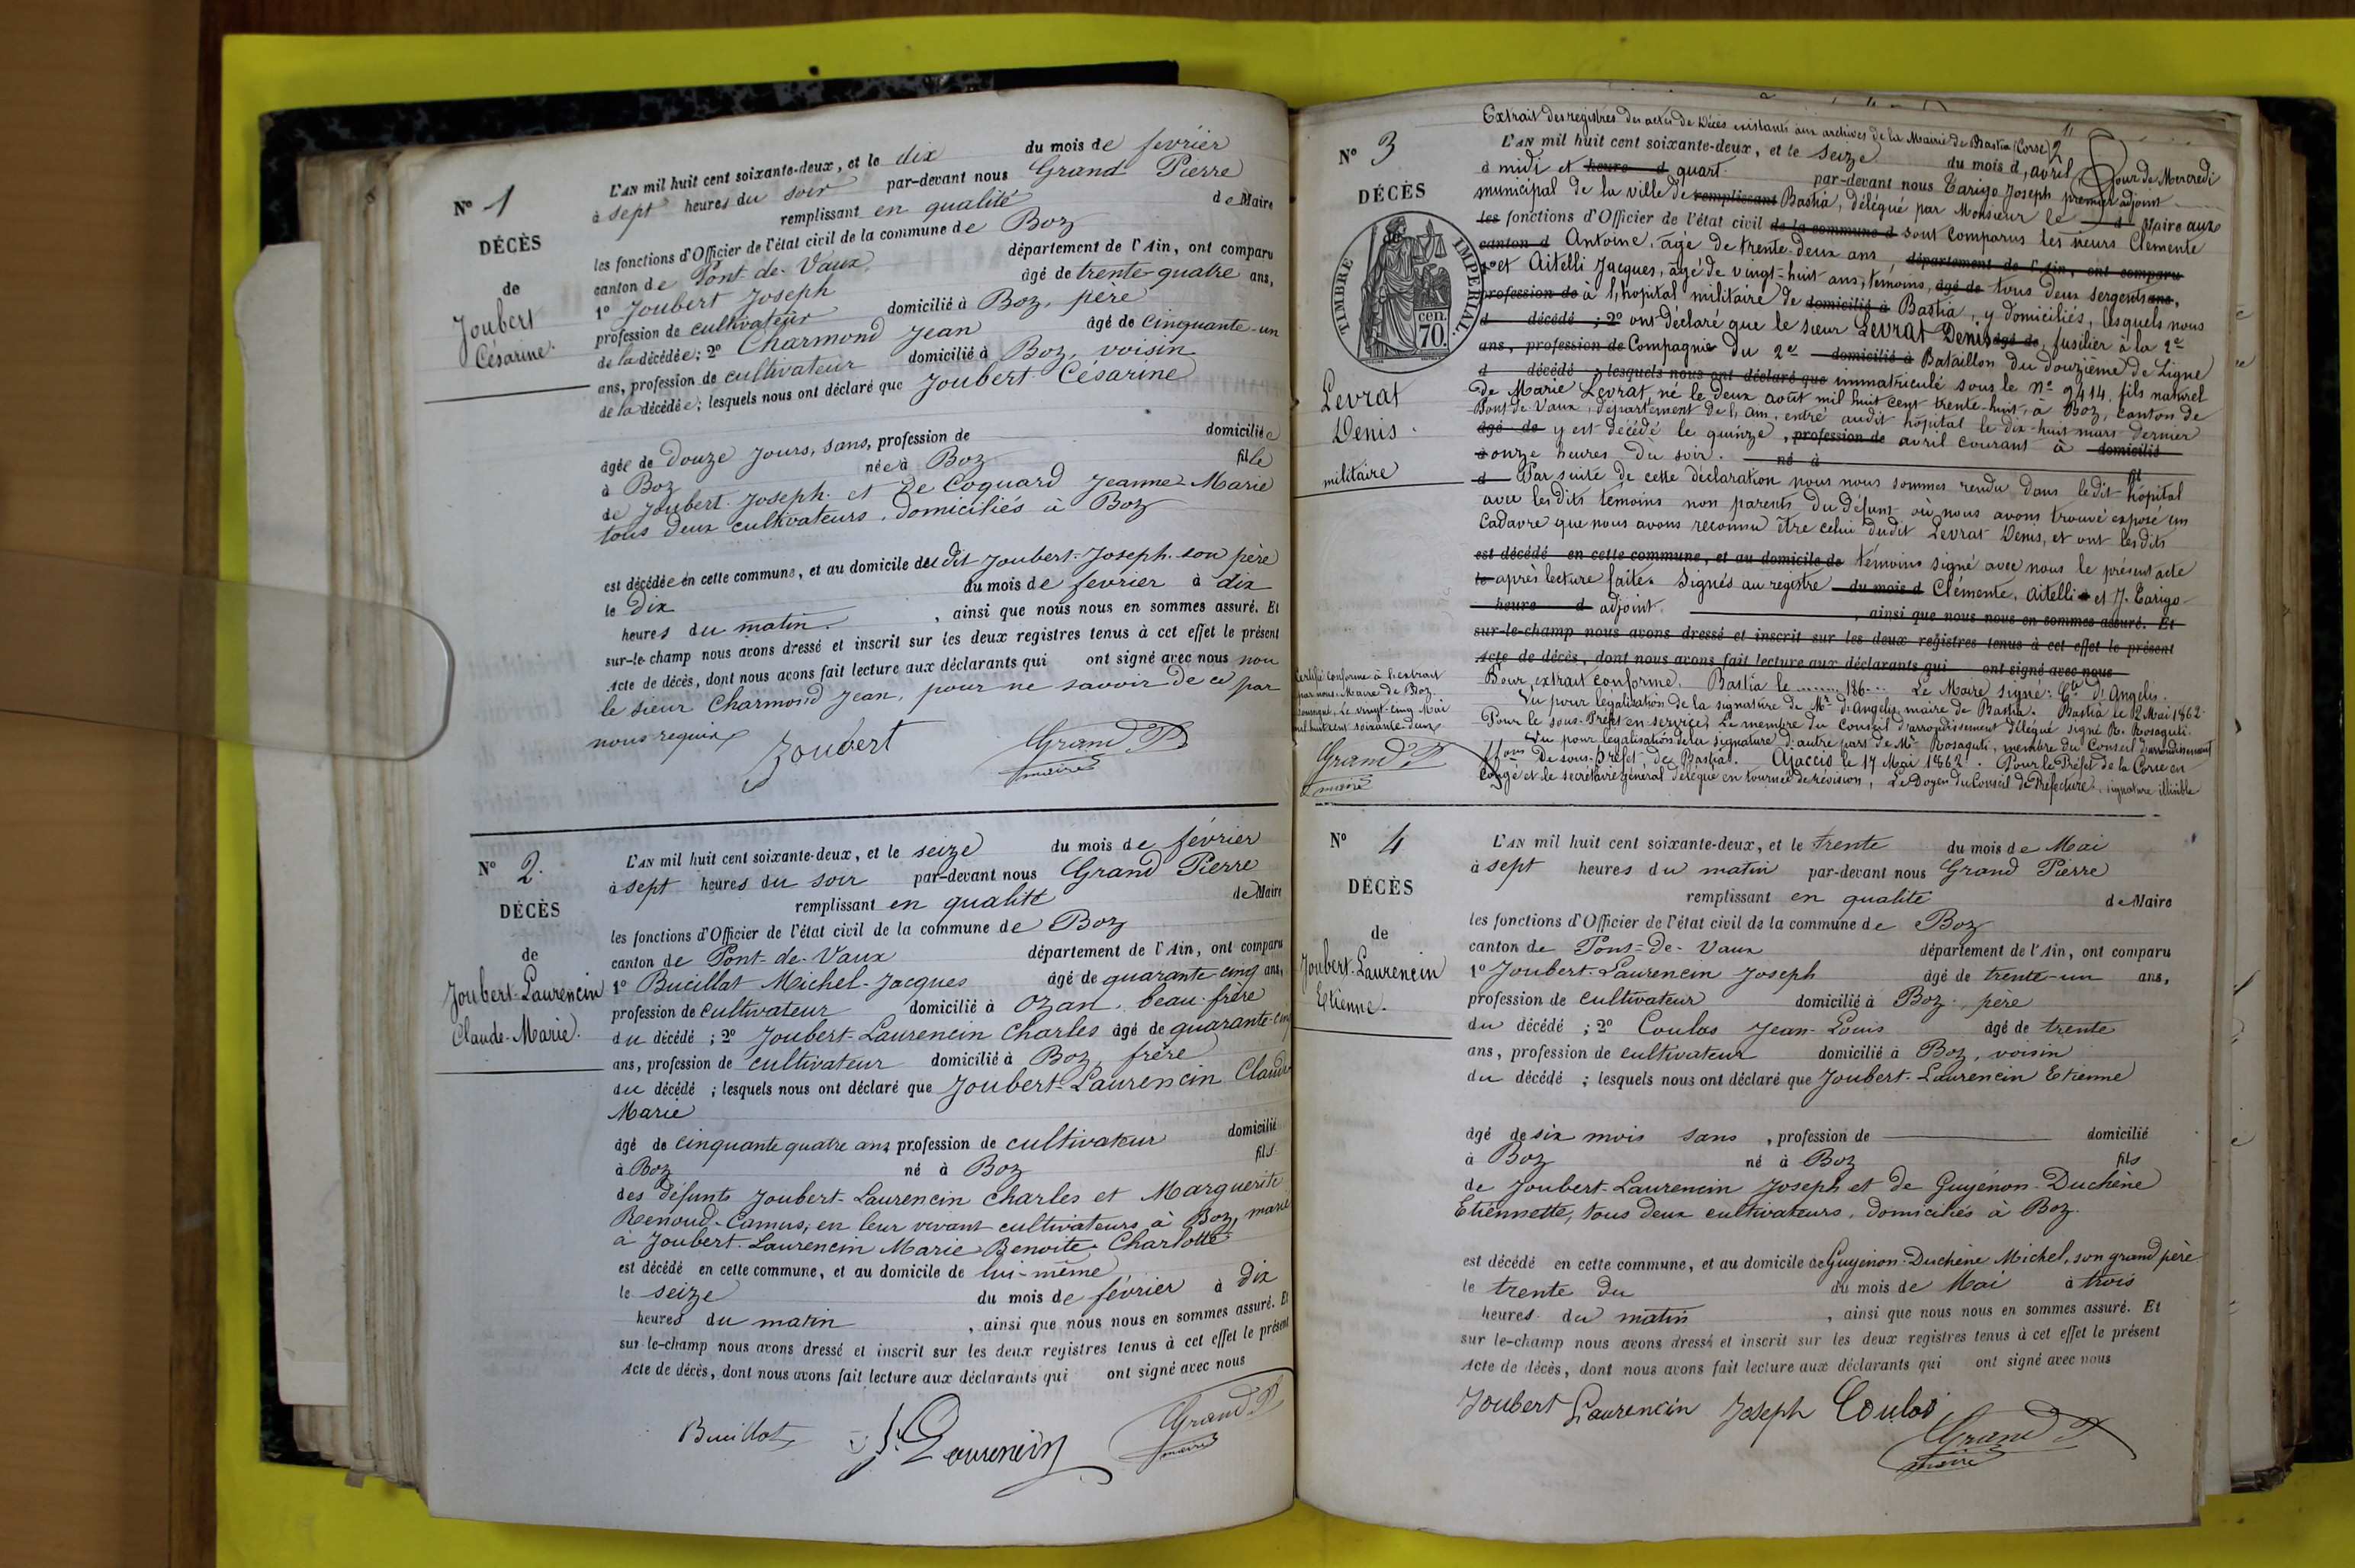 N° 1
DÉCÈS
de
Joubert
Césarine.
L'AN mil huit cent soixante-deux, et le dix du mois de février
à sept heures du soir par-devant nous Grand Pierre
remplissant en qualité de Maire
les fonctions d'Officier de l'état civil de la commune de Boz
canton de Pont-de-Vaux département de l'Ain, ont comparu
1° Joubert Joseph âgé de trente-quatre ans,
profession de cultivateur domicilié à Boz, père
de la décédée; 2° Charmond Jean âgé de cinquante-un
ans, profession de cultivateur domicilié à Boz, voisin
de la décédée; lesquels nous ont déclaré que Joubert Césarine
âgée de Douze jours, sans, profession de domiciliée
à Boz née à Boz fille
de Joubert Joseph et de Coquard Jeanne Marie
tous deux cultivateurs, domiciliés à Boz
est décédée en cette commune, et au domicile dudit Joubert-Joseph son père
le Dix du mois de fevrier à dix
heures du matin, ainsi que nous nous en sommes assuré. Et
sur-le-champ nous avons dressé et inscrit sur les deux registres tenus à cet effet le présent
Acte de décès, dont nous avons fait lecture aux déclarants qui ont signé avec nous non
le sieur Charmond Jean, pour ne savoir de ce par
nous requis
Joubert Grand P
maire
N° 2.
DÉCÈS
de
Joubert-Laurencin
Claude-Marie.
L'AN mil huit cent soixante-deux, et le seize du mois de février
à sept heures du soir par-devant nous Grand Pierre
remplissant en qualité de Maire
les fonctions d'Officier de l'état civil de la commune de Boz
canton de Pont-de-Vaux département de l'Ain, ont comparu
1° Bucillat Michel-Jacques âgé de quarante-cinq ans,
profession de cultivateur domicilié à Ozan, beau-frère
du décédé ; 2° Joubert-Laurencin Charles âgé de quarante-cinq
ans, profession de cultivateur domicilié à Boz, frère
du décédé ; lesquels nous ont déclaré que Joubert-Laurencin Claude
Marie
âgé de cinquante quatre ans, profession de cultivateur domicilié
à Boz né à Boz fils
des défunts Joubert-Laurencin Charles et Marguerite
Renoud-Camus, en leur vivant cultivateurs à Boz, marié
à Joubert-Laurencin Marie Benoite Charlotte
est décédé en cette commune, et au domicile de lui-même
le seize du mois de février à dix
heures du matin, ainsi que nous nous en sommes assuré. Et
sur-le-champ nous avons dressé et inscrit sur les deux registres tenus à cet effet le présent
Acte de décès, dont nous avons fait lecture aux déclarants qui ont signé avec nous
Laurencin Grand P
maire
N° 3
DÉCÈS
TIMBRE IMPÉRIAL.
70. cen.
Levrat
Denis.
militaire
Extrait des registres des actes de Décès existants aux archives de la Mairie de Bastia (Corse) 2
L'AN mil huit cent soixante-deux, et le seize du mois d'avril, jour de Mercredi
à midi et heure d quart par-devant nous Tarigo Joseph premier adjoint
municipal de la ville de remplissant Bastia, délégué par Monsieur le d Maire aux
les fonctions d'Officier de l'état civil de la commune d sont comparus les sieurs Clemente
canton d Antoine, âgé de trente-deux ans, département de l'Ain, ont comparu
1° et Aitelli Jacques, âgé de vingt-huit ans, témoins, âgé de tous deux sergents ans,
profession de à l'hôpital militaire de domicilié à Bastia, y domiciliés, lesquels nous
d décédé ; 2° ont déclaré que le sieur Levrat Denis âgé de, fusilier à la 2e
ans, profession de Compagnie du 2e domicilié à Bataillon du douzième de Ligne
d décédé ; lesquels nous ont déclaré que immatriculé sous le n° 9414, fils naturel
de Marie Levrat, né le deux août mil huit cent trente-huit, à Boz, canton de
Pont de Vaux, département de l'Ain, entré audit hôpital le dix-huit mars dernier
âgé de y est décédé le quinze, profession de avril courant à domicilié
à onze heures du soir. né à
d Par suite de cette déclaration nous nous sommes rendu dans le dit hôpital fil
avec les dits témoins non parents du défunt où nous avons trouvé exposé un
Cadavre que nous avons reconnu être celui dudit Levrat Denis, et ont lesdits
est décédé en cette commune, et au domicile de témoins signé avec nous le présent acte
le après lecture faite. Signés au registre du mois d Clémente, Aitelli et J. Tarigo
heure d adjoint. , ainsi que nous nous en sommes assuré. Et
sur-le-champ nous avons dressé et inscrit sur les deux registres tenus à cet effet le présent
Acte de décès, dont nous avons fait lecture aux déclarants qui ont signé avec nous
Pour extrait conforme. Bastia le ........ 186... Le Maire signé: Cte d'Angelis.
Vu pour légalisation de la signature de Mr d'Angelis maire de Bastia. Bastia le 12 Mai 1862.
Pour le sous-Préfet en service, Le membre du Conseil d'arrondissement délégué signé R. Rosaguti.
Vu pour légalisation de la signature d'autre part de Mr Rosaguti, membre du Conseil d'arrondissement
ffons De sous-préfet de Bastia. Ajaccio le 17 Mai 1862. Pour le Préfet de la Corse en
congé et le secrétaire général délégué en tournée de révision, Le Doyen du Conseil de Préfecture, signature illisible
Certifié conforme à l'extrait
par nous, Maire de Boz
soussigné, Le vingt-cinq Mai
mil huit cent soixante-deux
Grand P
maire
N° 4
DÉCÈS
de
Joubert-Laurencin
Etienne.
L'AN mil huit cent soixante-deux, et le trente du mois de Mai
à sept heures du matin par-devant nous Grand Pierre
remplissant en qualité de Maire
les fonctions d'Officier de l'état civil de la commune de Boz
canton de Pont-de-Vaux département de l'Ain, ont comparu
1° Joubert-Laurencin Joseph âgé de trente-un ans,
profession de cultivateur domicilié à Boz, père
du décédé ; 2° Coulas Jean-Louis âgé de trente
ans, profession de cultivateur domicilié à Boz, voisin
du décédé ; lesquels nous ont déclaré que Joubert-Laurencin Etienne
âgé de six mois sans, profession de domicilié
à Boz né à Boz fils
de Joubert-Laurencin Joseph et de Guyénon-Duchène
Etiennette, tous deux cultivateurs, domiciliés à Boz.
est décédé en cette commune, et au domicile de Guyénon-Duchène Michel, son grand père
le trente du du mois de Mai à trois
heures du matin, ainsi que nous nous en sommes assuré. Et
sur le-champ nous avons dressé et inscrit sur les deux registres tenus à cet effet le présent
Acte de décès, dont nous avons fait lecture aux déclarants qui ont signé avec nous
Joubert Laurencin Joseph Coulas
Grand P
maire